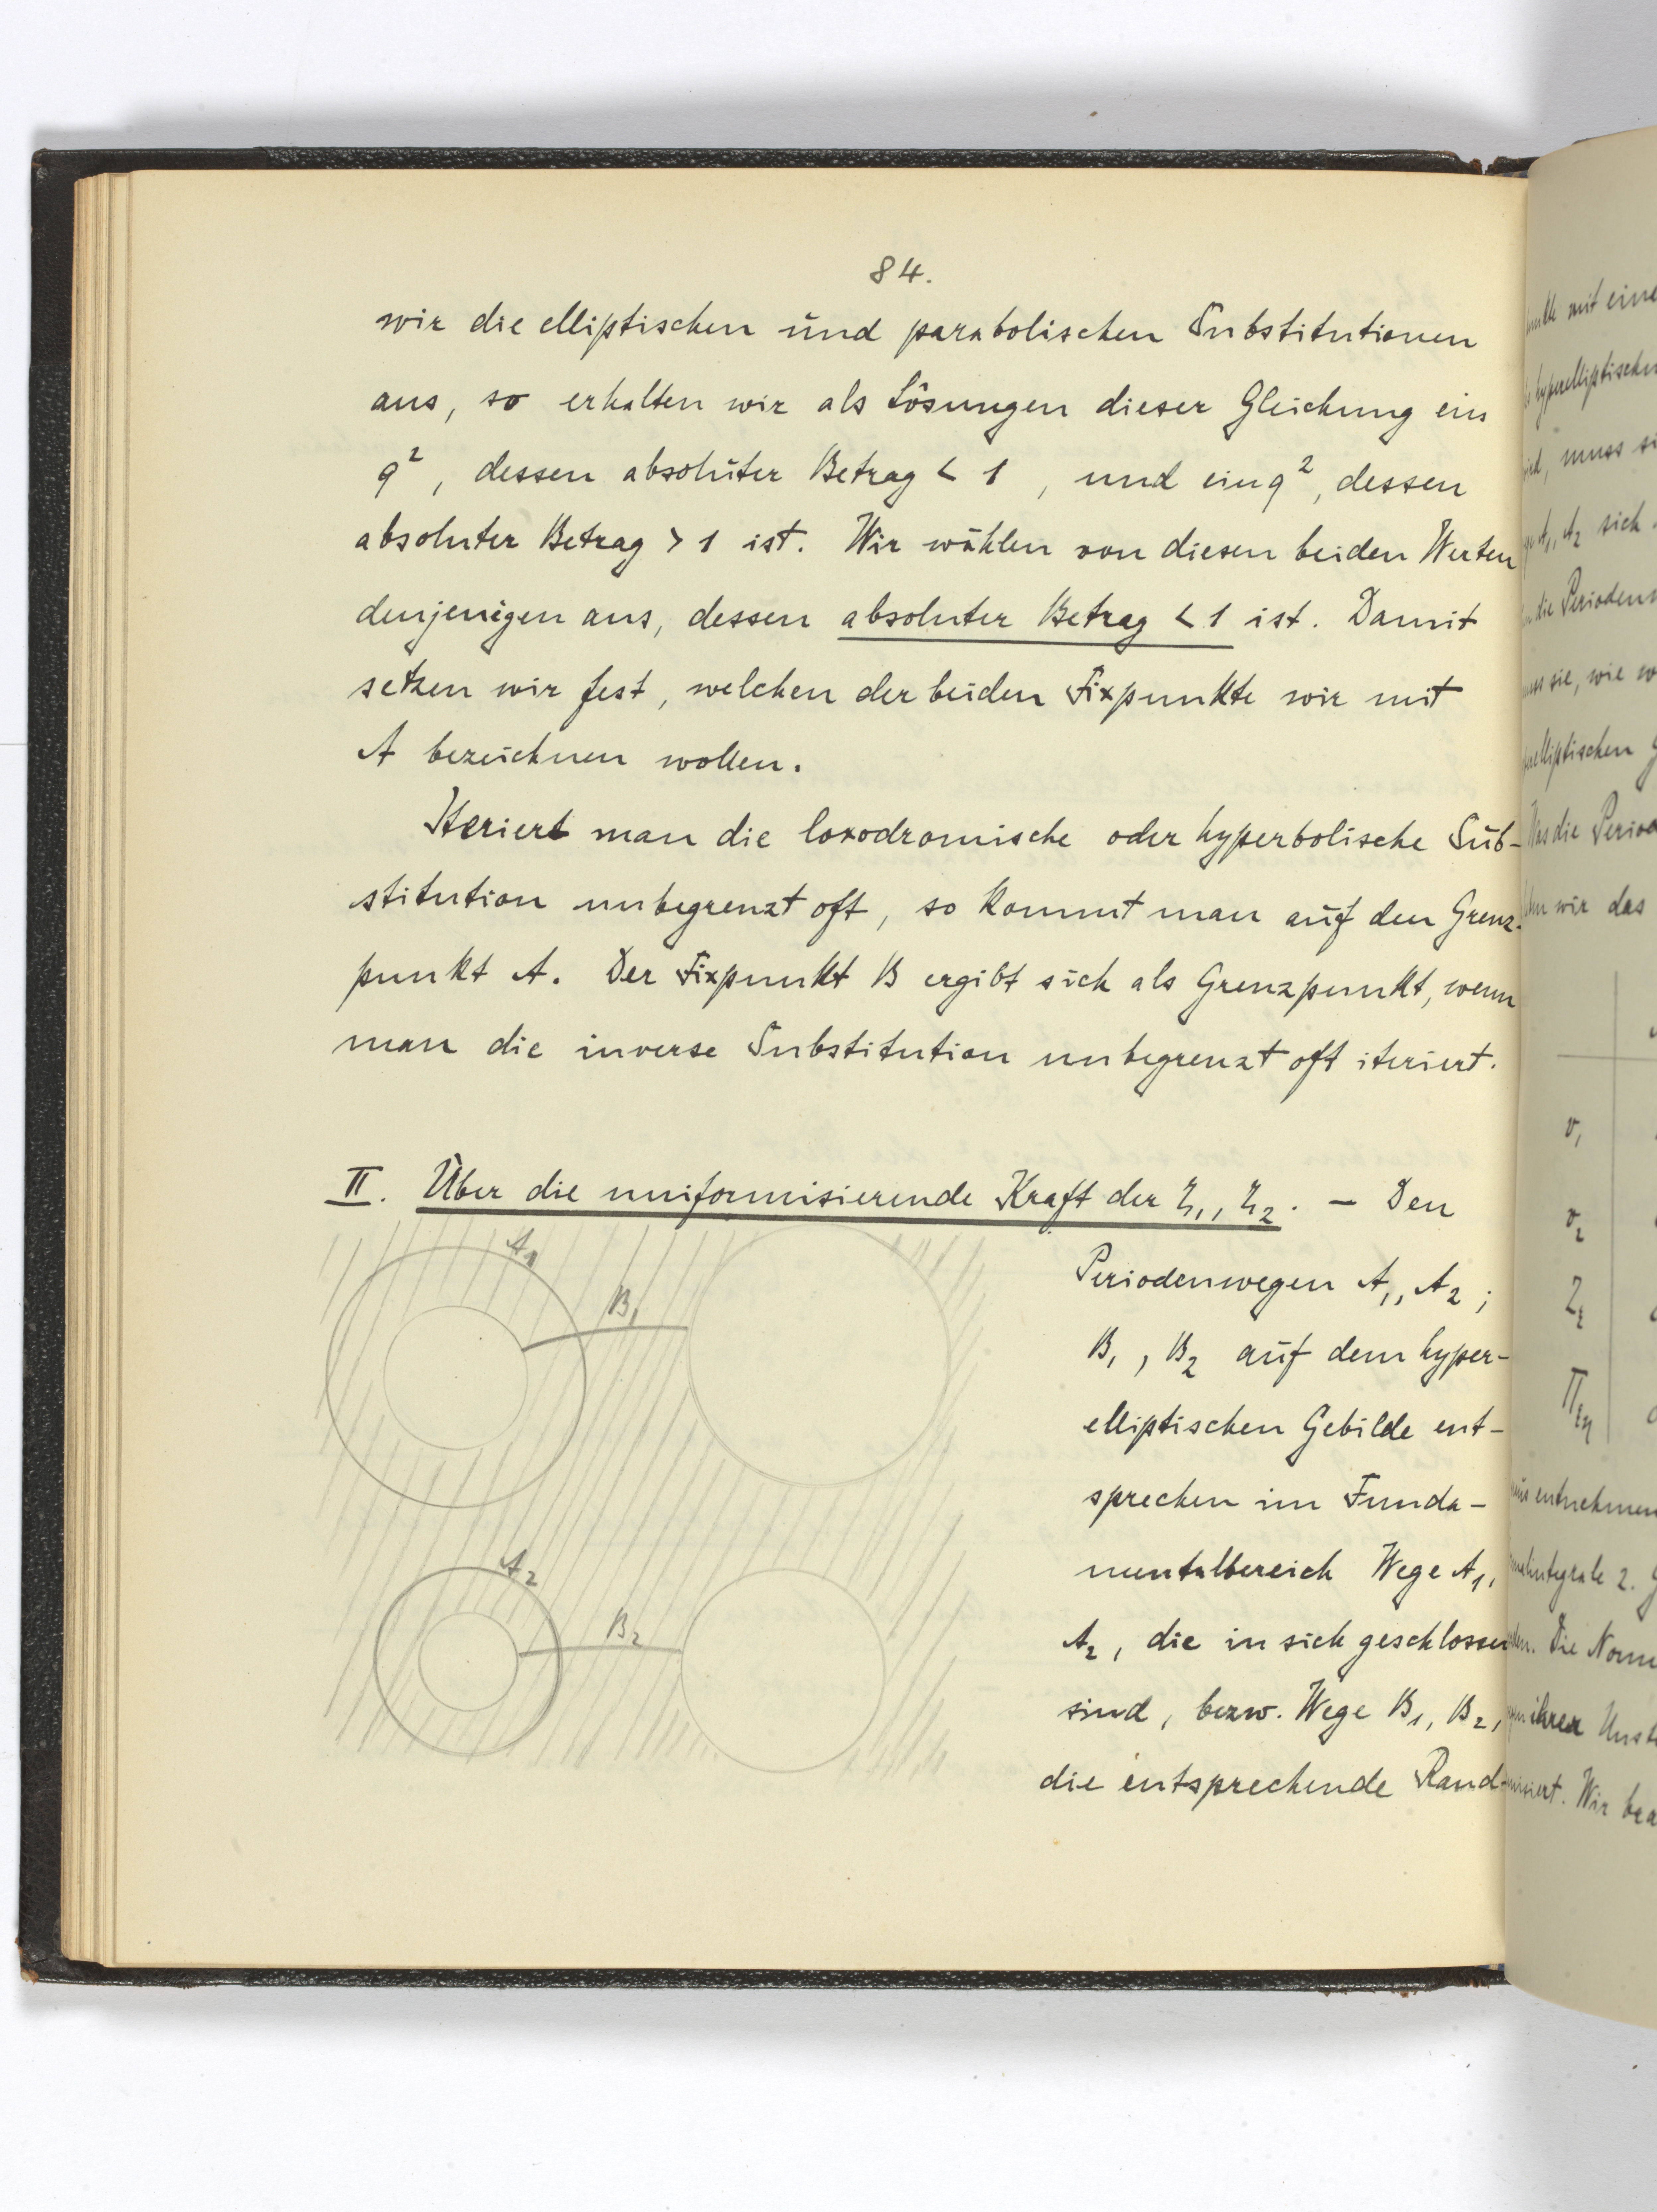 84.
wir die elliptischen und parabolischen Substitutionen
aus, so erhalten wir als Lösungen dieser Gleichung ein
q², dessen absoluter Betrag < 1, und ein q², dessen
absoluter Betrag > 1 ist. Wir wählen von diesen beiden Werten
denjenigen aus, dessen absoluter Betrag < 1 ist. Damit
setzen wir fest, welchen der beiden Fixpunkte wir mit
A bezeichnen wollen.
Iteriert man die loxodromische oder hyperbolische Sub-
stitution unbegrenzt oft, so kommt man auf den Grenz-
punkt A. Der Fixpunkt B ergibt sich als Grenzpunkt, wenn
man die inverse Substitution unbegrenzt oft iteriert.
II. Über die uniformisierende Kraft der ζ₁, ζ₂. – Den
A₁
B₁
A₂
B₂
Periodenwegen A₁, A₂;
B₁, B₂ auf dem hyper-
elliptischen Gebilde ent-
sprechen im Funda-
mentalbereich Wege A₁,
A₂, die in sich geschlossen
sind, bezw. Wege B₁, B₂,
die entsprechende Rand-
mit eine
hyperelliptischen
muss si
A₁, A₂ sich
die Perioden
sie, wie w
elliptischen
die Period
wir das
v₁
v₂
entnehmen
integrale 2.
Die Norm
ihrer
Wir